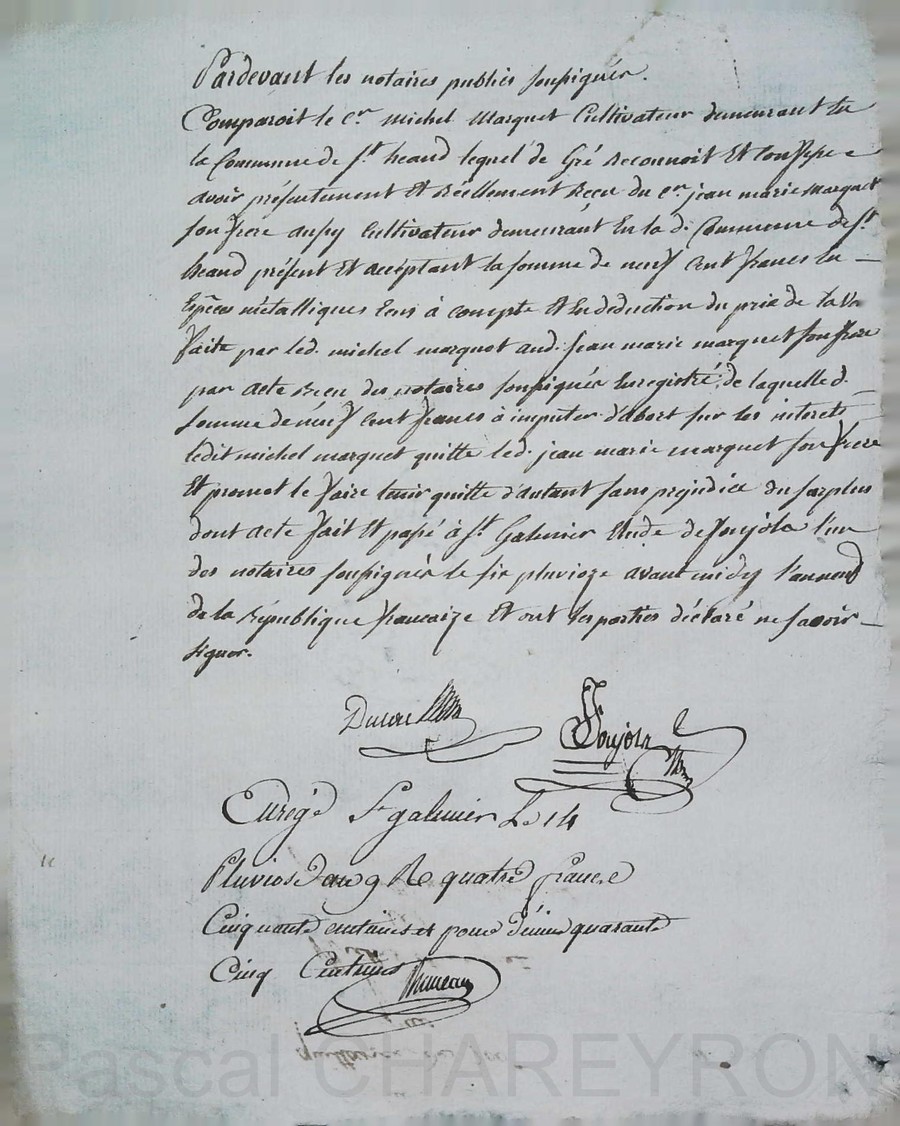 Pardevant les notaires publics soussignés.
Comparoit le Cen. Michel Marquet Cultivateur demeurant En
la Commune de St. heand lequel de Gré Reconnoit Et Confesse
avoir présentement Et réellement Reçu du Cen. jean marie Marquet
son frere aussy Cultivateur demeurant En la d. Commune de St.
heand présent Et acceptant la somme de neuf Cent francs En
Espèces métalliques Cens à compte Et En déduction du prix de la
faite par led. michel marquet aud. Jean marie marquet son frere
par acte Recu des notaires soussignés Enregistré, de laquelle d.
somme de neuf Cent francs à imputer d'abort sur les interets
ledit michel marquet quitte led. jean marie marquet son frere
Et promet le faire tenir quitte d'autant sans prejudice du surplus
dont acte fait Et passé à St. Galmier Etude de Joujola l'un
des notaires soussignés le six pluvioze avant midy l'an neuf
de la République francaize Et ont les parties déclaré ne savoir
signer.
Joujola
Enregé St galmier Le 14
Pluviose an 9 R quatre francs
Cinquante centimes et pour Dixme quarante
Cinq Centimes
Pascal CHAREYRON